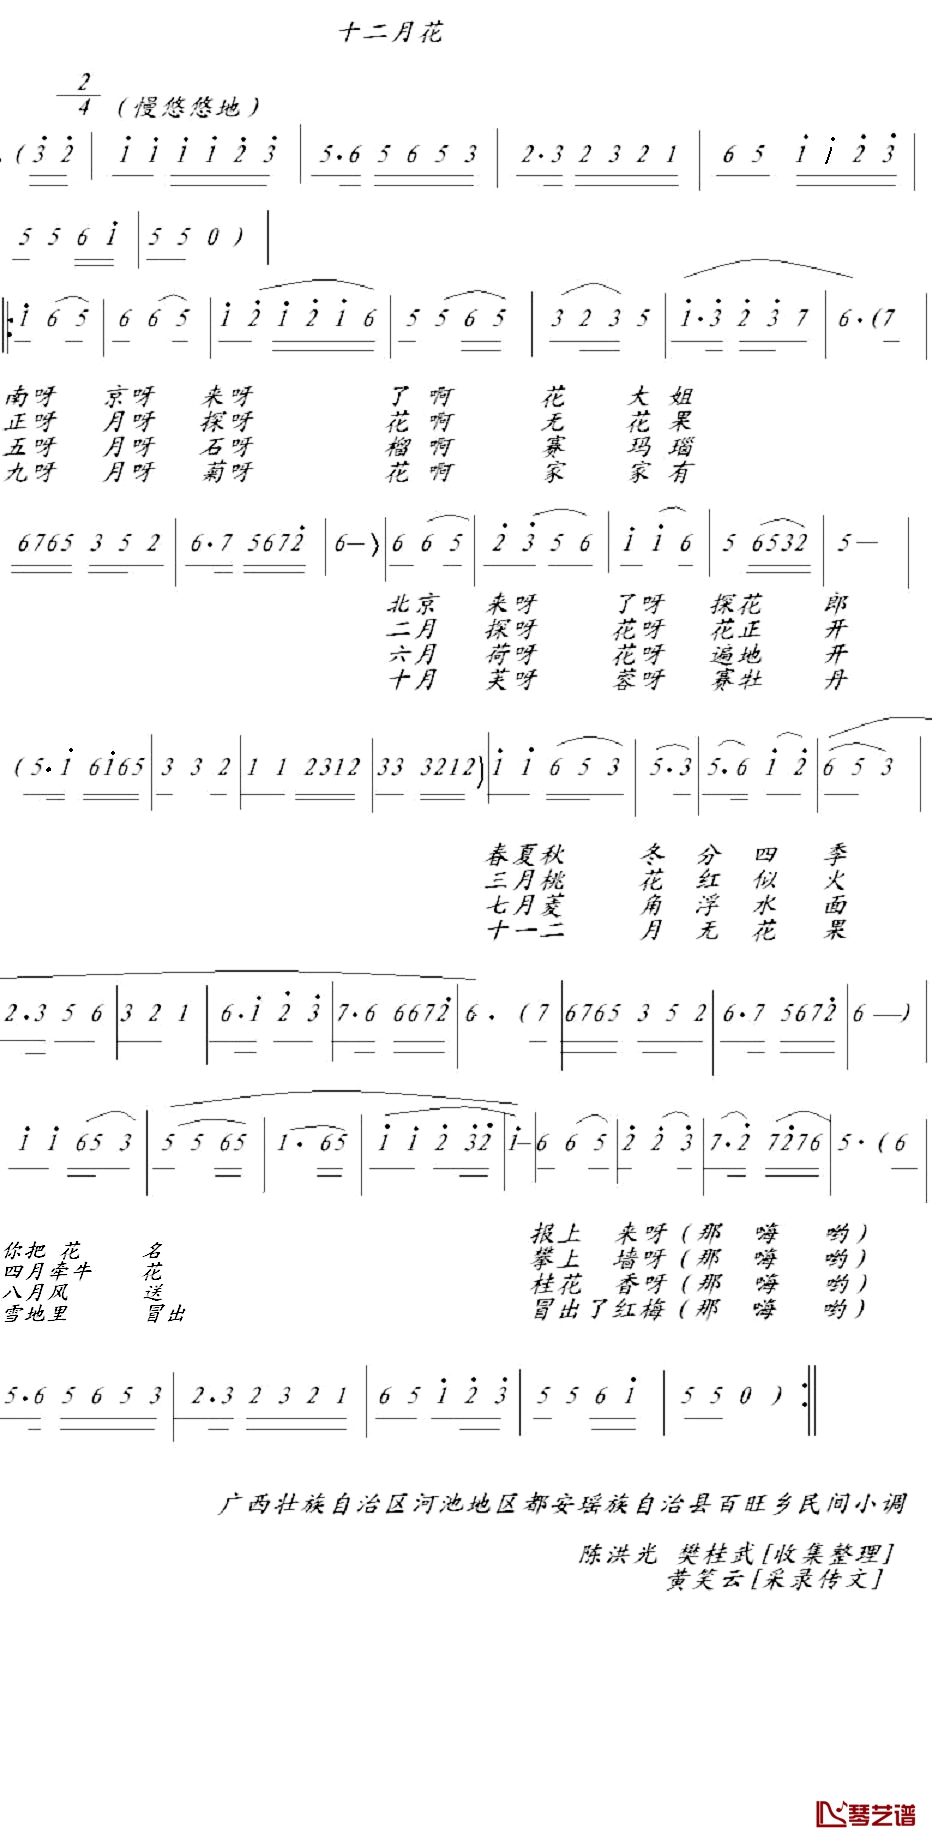 十二月花
2
4 (慢悠悠地)
(3 2 | 1 1 1 1 2 3 | 5.6 5 6 5 3 | 2.3 2 3 2 1 | 6 5 1 1 2 3 |
5 5 6 1 | 5 5 0 ) |
1 6 5 | 6 6 5 | 1 2 1 2 1 6 | 5 5 6 5 | 3 2 3 5 | 1.3 2 3 7 | 6.(7 |
南呀 京呀 来呀 了啊 花 大姐
正呀 月呀 探呀 花啊 无 花果
五呀 月呀 石呀 榴啊 赛 玛瑙
九呀 月呀 菊呀 花啊 家 家有
6765 3 5 2 | 6.7 5672 | 6—) | 6 6 5 | 2 3 5 6 | 1 1 6 | 5 6532 | 5— |
北京 来呀 了呀 探花 郎
二月 探呀 花呀 花正 开
六月 荷呀 花呀 遍地 开
十月 芙呀 蓉呀 赛牡 丹
(5.1 6165 | 3 3 2 | 1 1 2312 | 33 3212) | 1 1 6 5 3 | 5.3 | 5.6 1 2 | 6 5 3 |
春夏秋 冬 分 四 季
三月桃 花 红 似 火
七月菱 角 浮 水 面
十一二 月 无 花 果
2.3 5 6 | 3 2 1 | 6.1 2 3 | 7.6 6672 | 6. (7 | 6765 3 5 2 | 6.7 5672 | 6—) |
1 1 65 3 | 5 5 65 | 1. 65 | 1 1 2 32 | 1— | 6 6 5 | 2 2 3 | 7.2 7276 | 5. (6 |
报上 来呀 (那 嗨 哟)
你把 花 名
攀上 墙呀 (那 嗨 哟)
四月牵牛 花
桂花 香呀 (那 嗨 哟)
八月风 送
冒出了红梅 (那 嗨 哟)
雪地里 冒出
5.6 5 6 5 3 | 2.3 2 3 2 1 | 6 5 1 2 3 | 5 5 6 1 | 5 5 0 ) :||
广西壮族自治区河池地区都安瑶族自治县百旺乡民间小调
陈洪光 樊桂武[收集整理]
黄笑云[采录传文]
琴艺谱